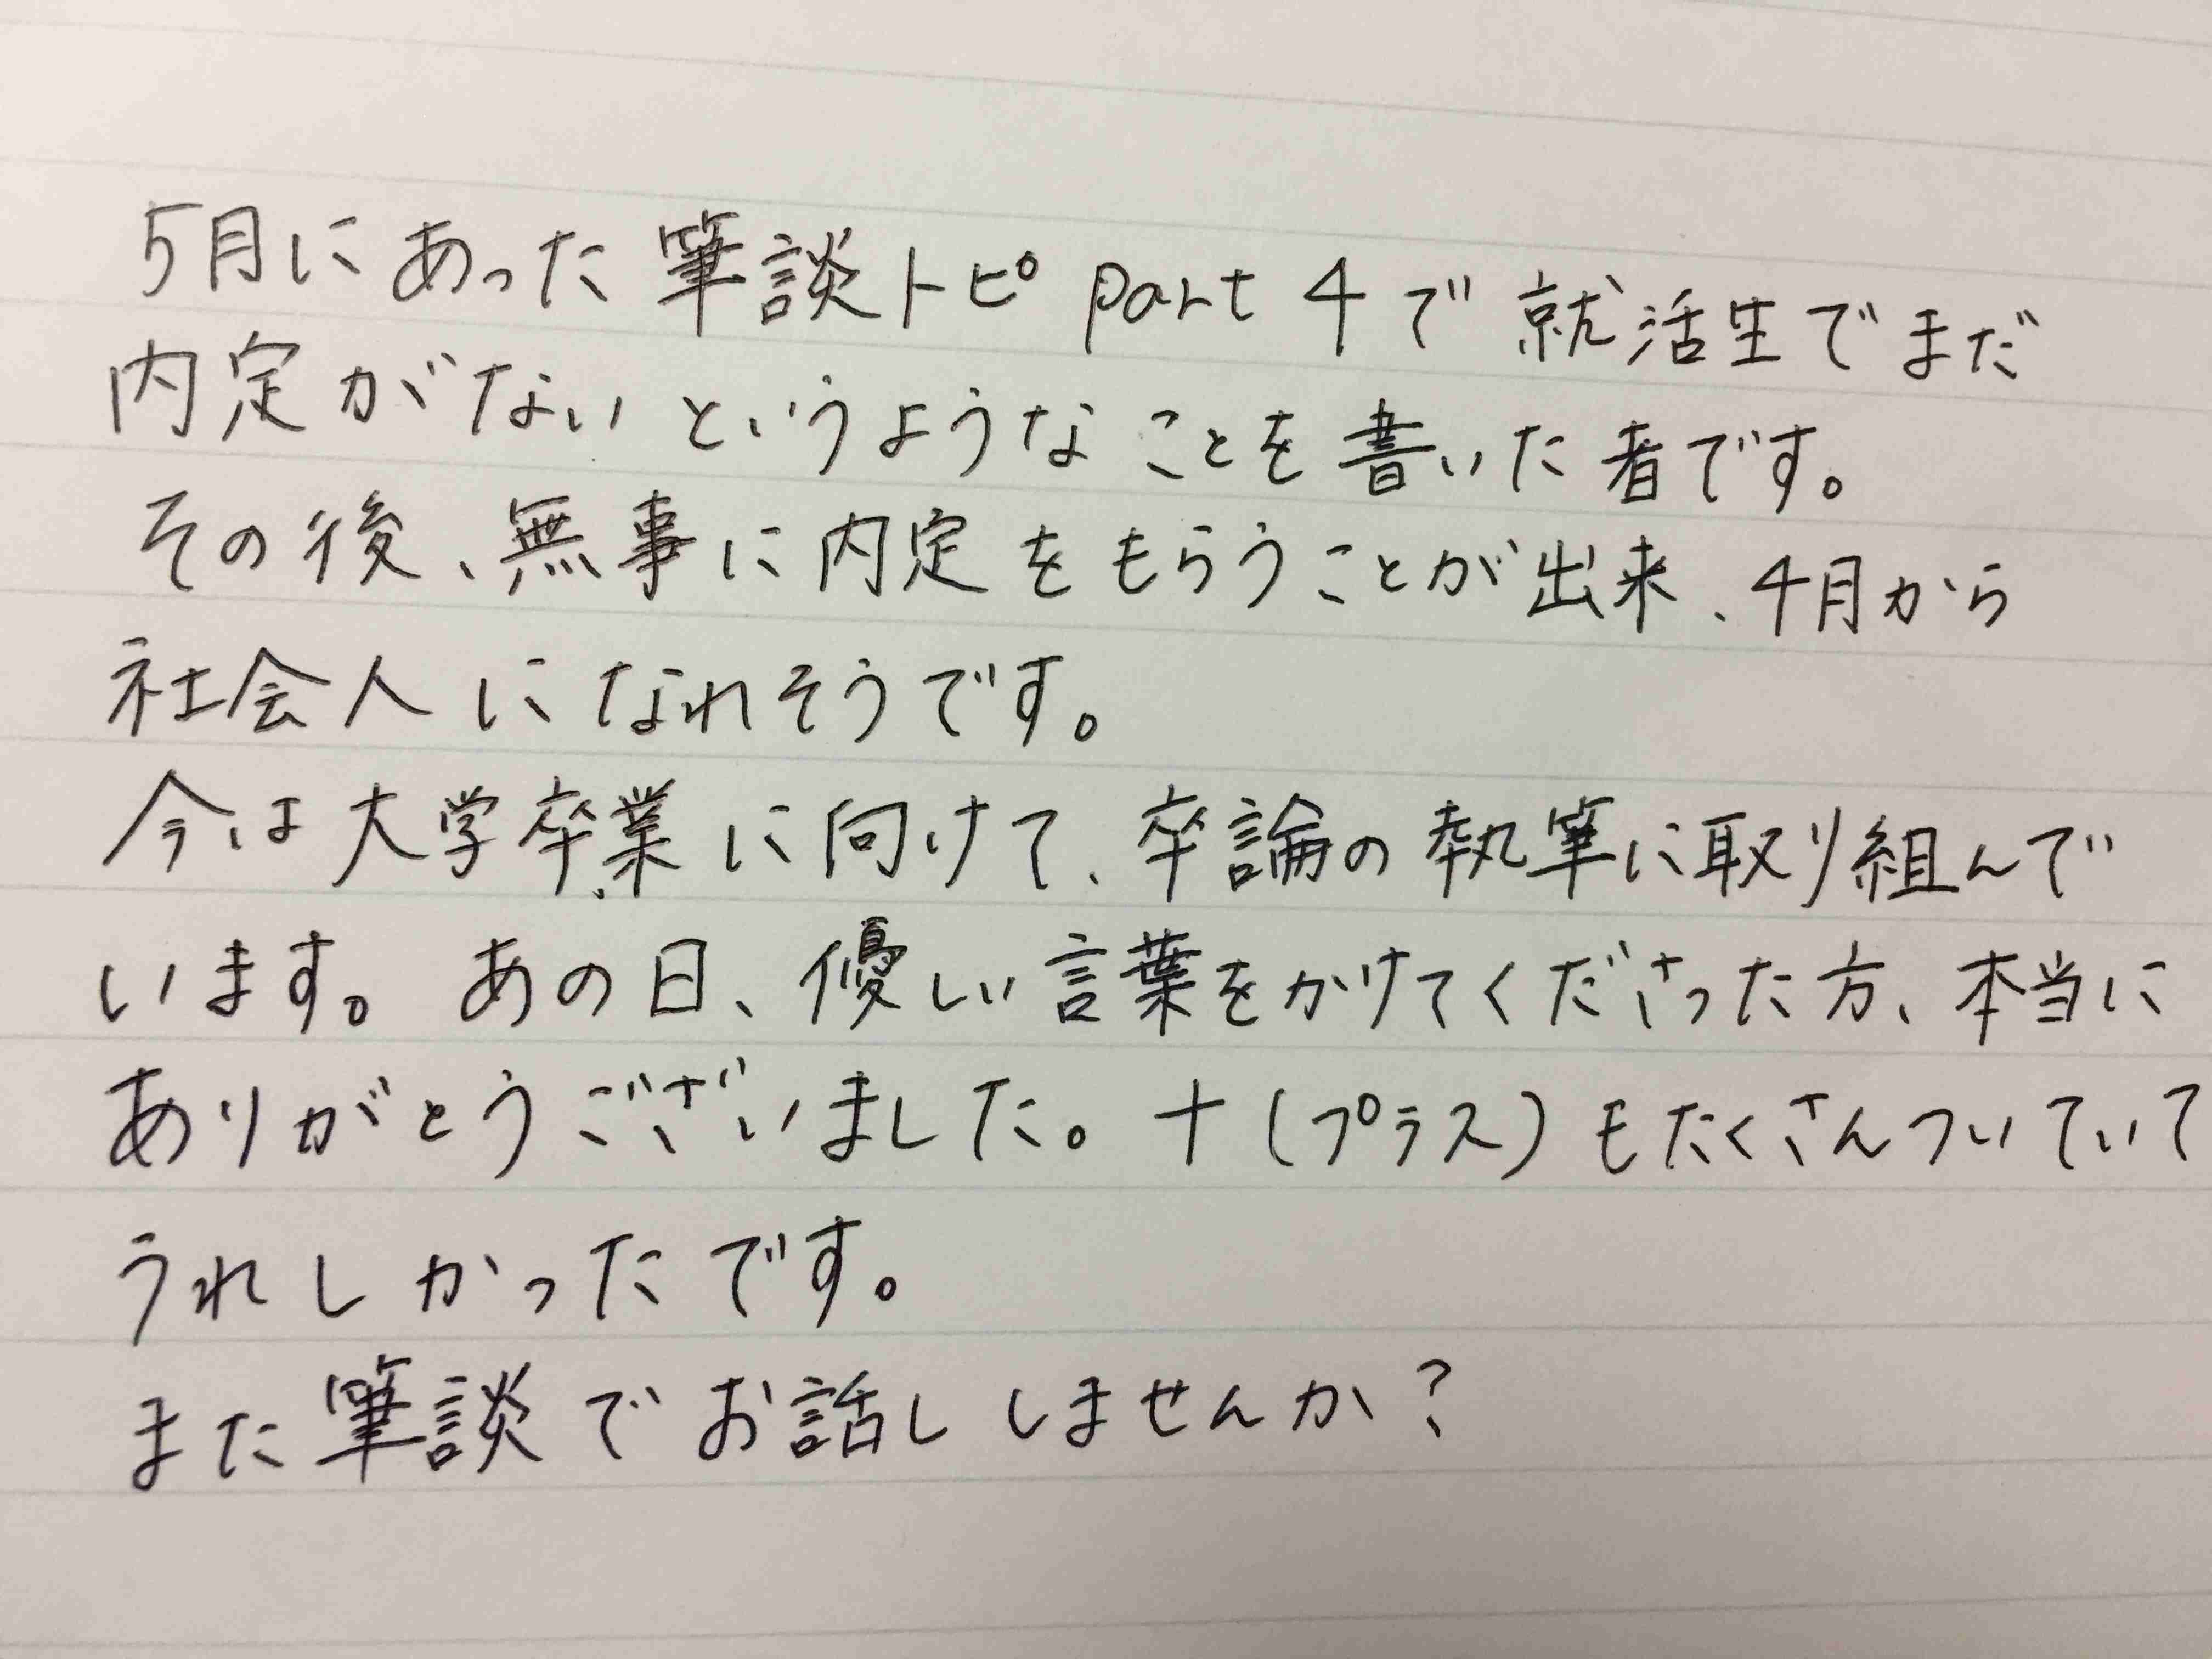 5月にあった筆談トピpart4で就活生でまだ
内定がないというようなことを書いた者です。
その後、無事に内定をもらうことが出来、4月から
社会人になれそうです。
今は大学卒業に向けて、卒論の執筆に取り組んで
います。あの日、優しい言葉をかけてくださった方、本当に
ありがとうございました。+(プラス)もたくさんついていて
うれしかったです。
また筆談でお話ししませんか?